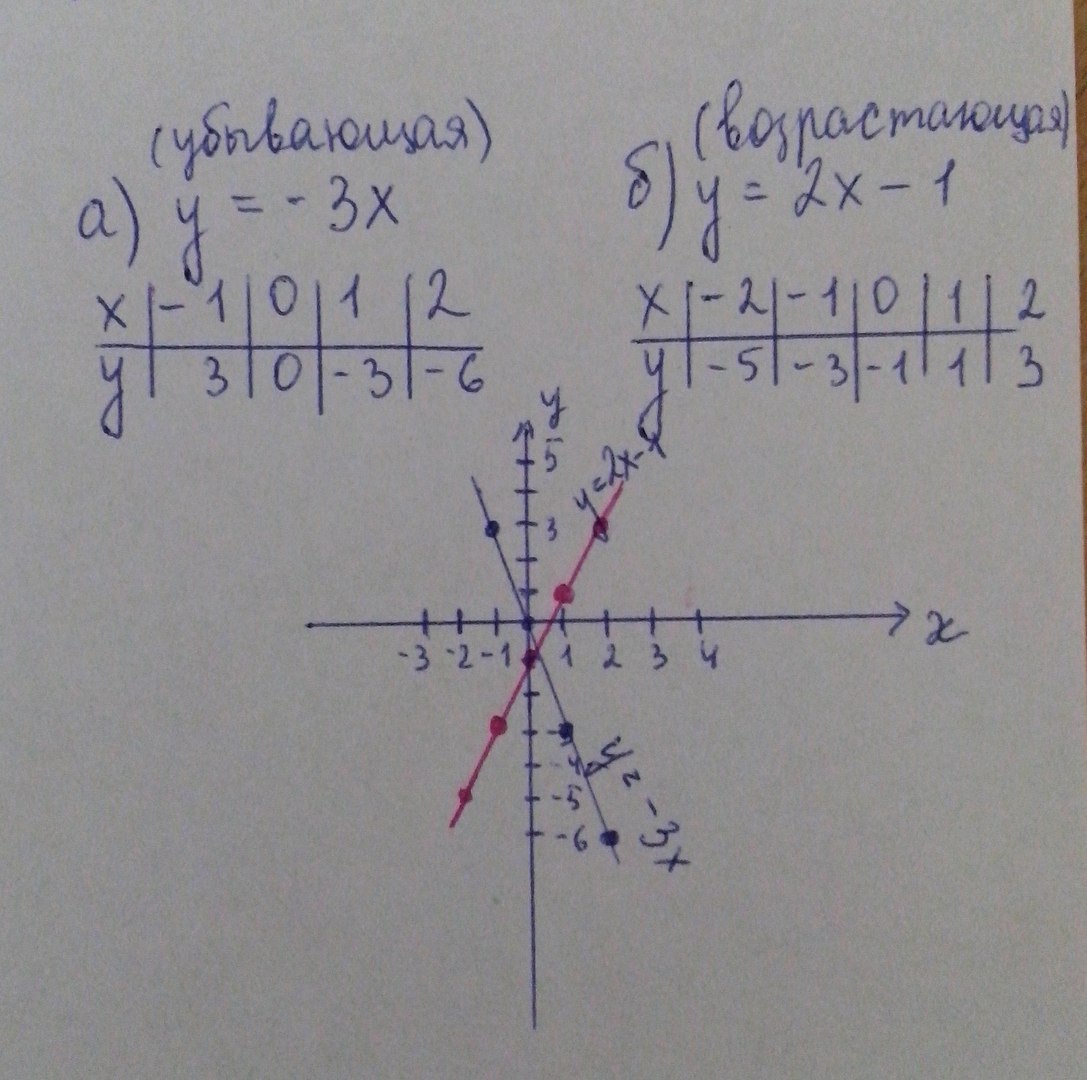 (убывающая)
а) y = - 3x
x | - 1 | 0 | 1 | 2
y | 3 | 0 | - 3 | - 6
(возрастающая)
б) y = 2x - 1
x | - 2 | - 1 | 0 | 1 | 2
y | - 5 | - 3 | - 1 | 1 | 3
y
5
3
y = 2x - 1
x
-3 -2 -1 1 2 3 4
-3
-4
-5
-6
y = - 3x